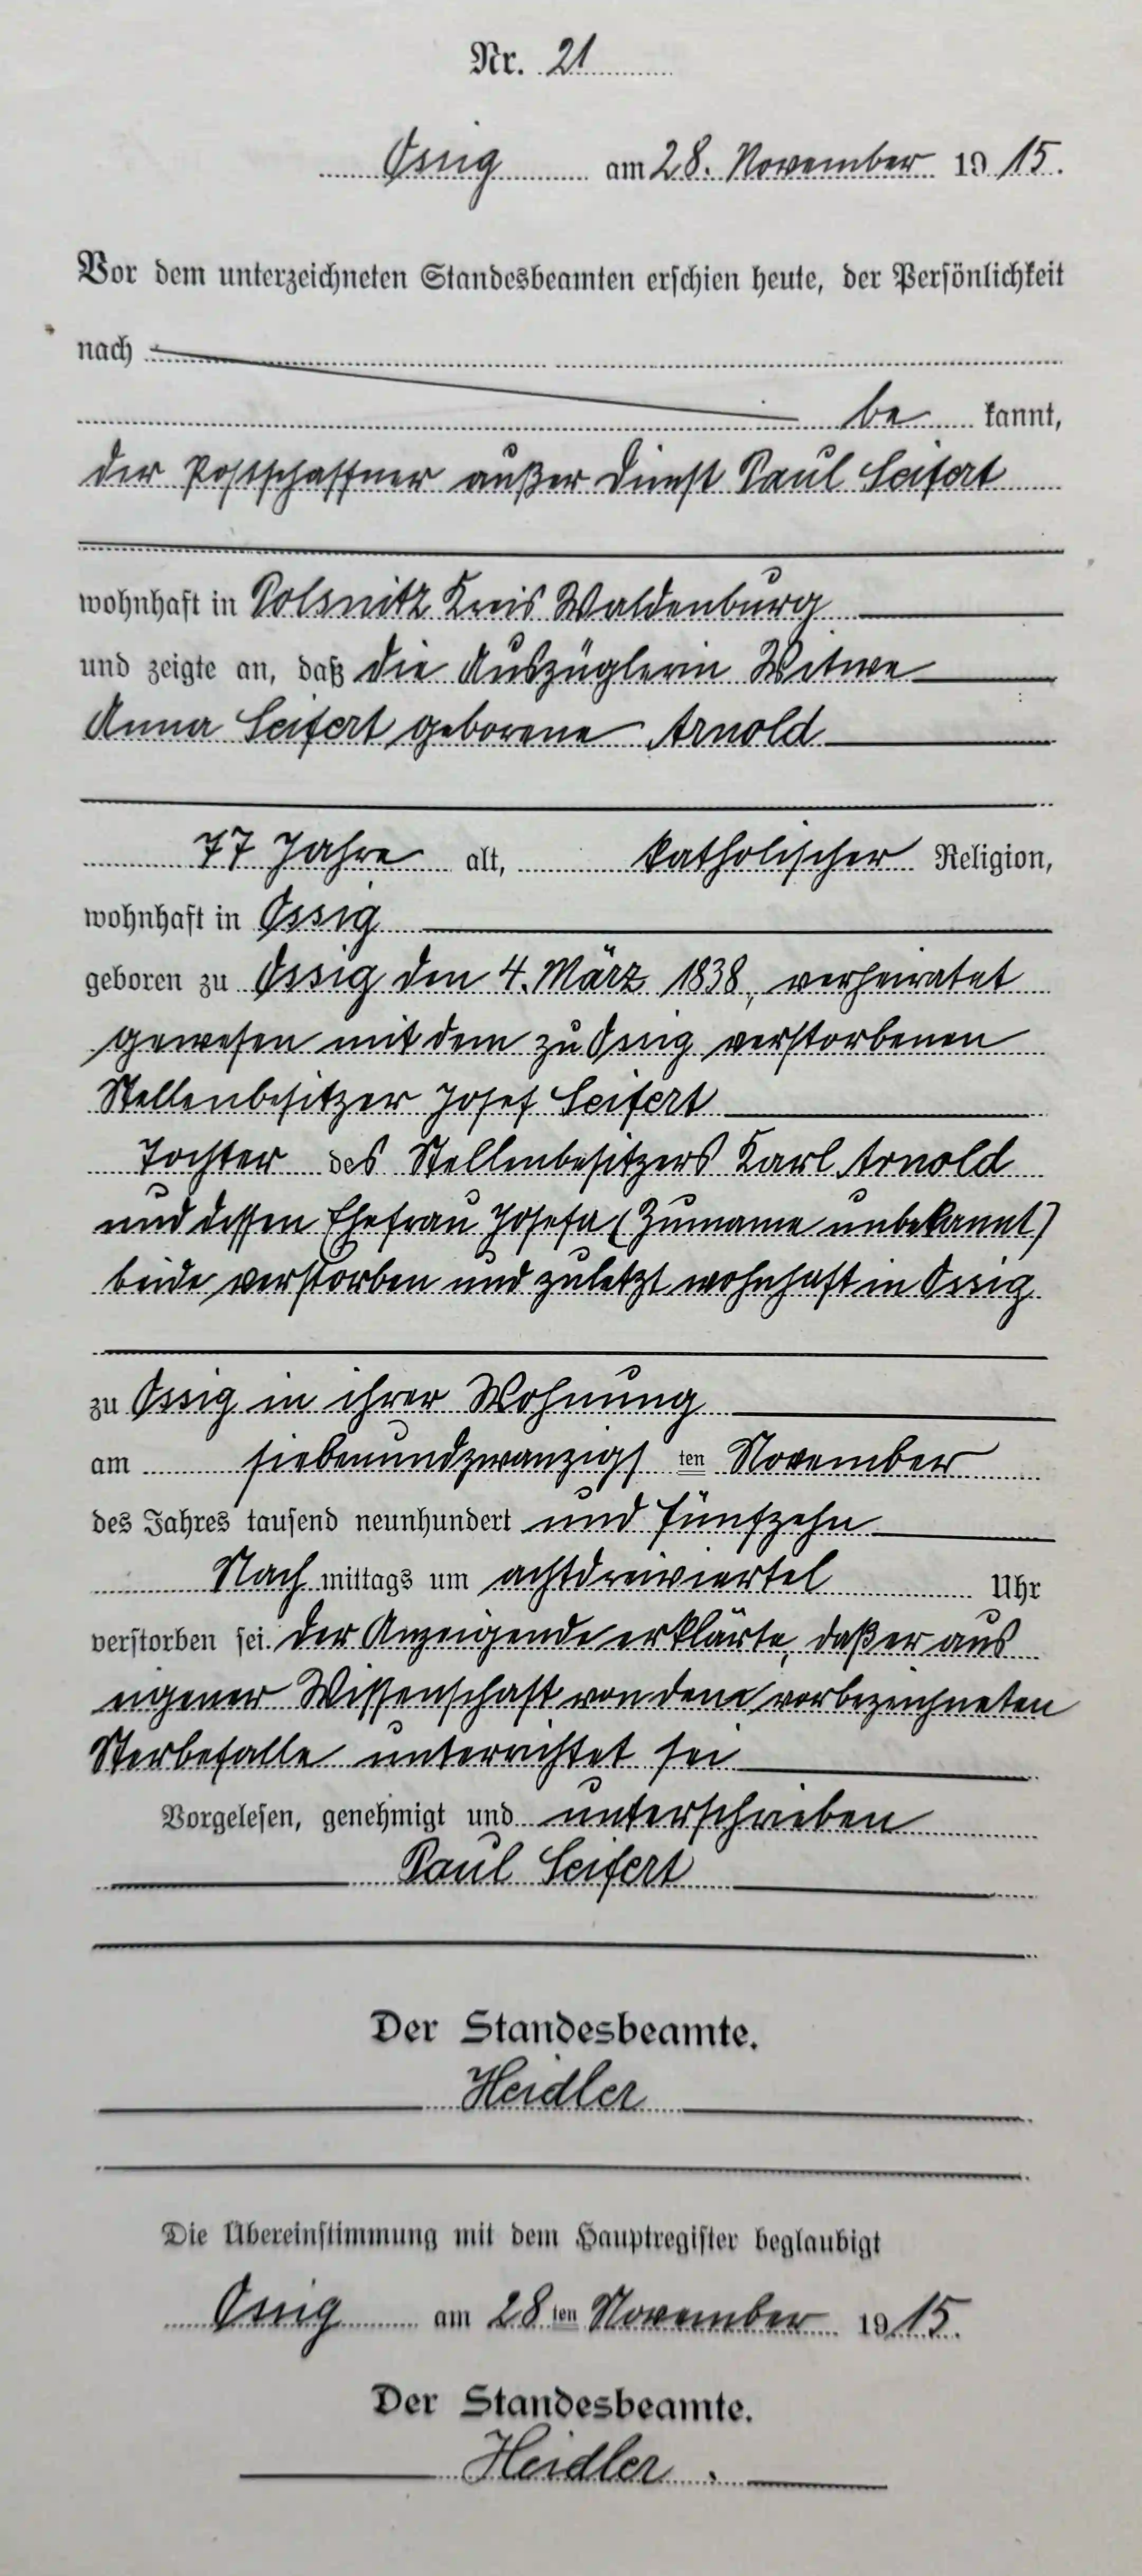 Nr. 21
Ossig am 28. November 1915.
Vor dem unterzeichneten Standesbeamten erschien heute, der Persönlichkeit
nach
be kannt,
der Postschaffner außer Dienst Paul Seifert
wohnhaft in Polsnitz Kreis Waldenburg
und zeigte an, daß die Auszüglerin Witwe
Anna Seifert geborene Arnold
77 Jahre alt, katholischer Religion,
wohnhaft in Ossig
geboren zu Ossig den 4. März 1838, verheiratet
gewesen mit dem zu Ossig verstorbenen
Stellenbesitzer Josef Seifert
Tochter des Stellenbesitzers Karl Arnold
und dessen Ehefrau Josefa (Zuname unbekannt)
beide verstorben und zuletzt wohnhaft in Ossig
zu Ossig in ihrer Wohnung
am siebenundzwanzigs ten November
des Jahres tausend neunhundert und fünfzehn
Nach mittags um achtdreiviertel Uhr
verstorben sei. Der Anzeigende erklärte, daß er aus
eigener Wissenschaft von dem vorbezeichneten
Sterbefalle unterrichtet sei
Vorgelesen, genehmigt und unterschrieben
Paul Seifert
Der Standesbeamte.
Heidler
Die Übereinstimmung mit dem Hauptregister beglaubigt
Ossig am 28ten November 1915.
Der Standesbeamte.
Heidler.